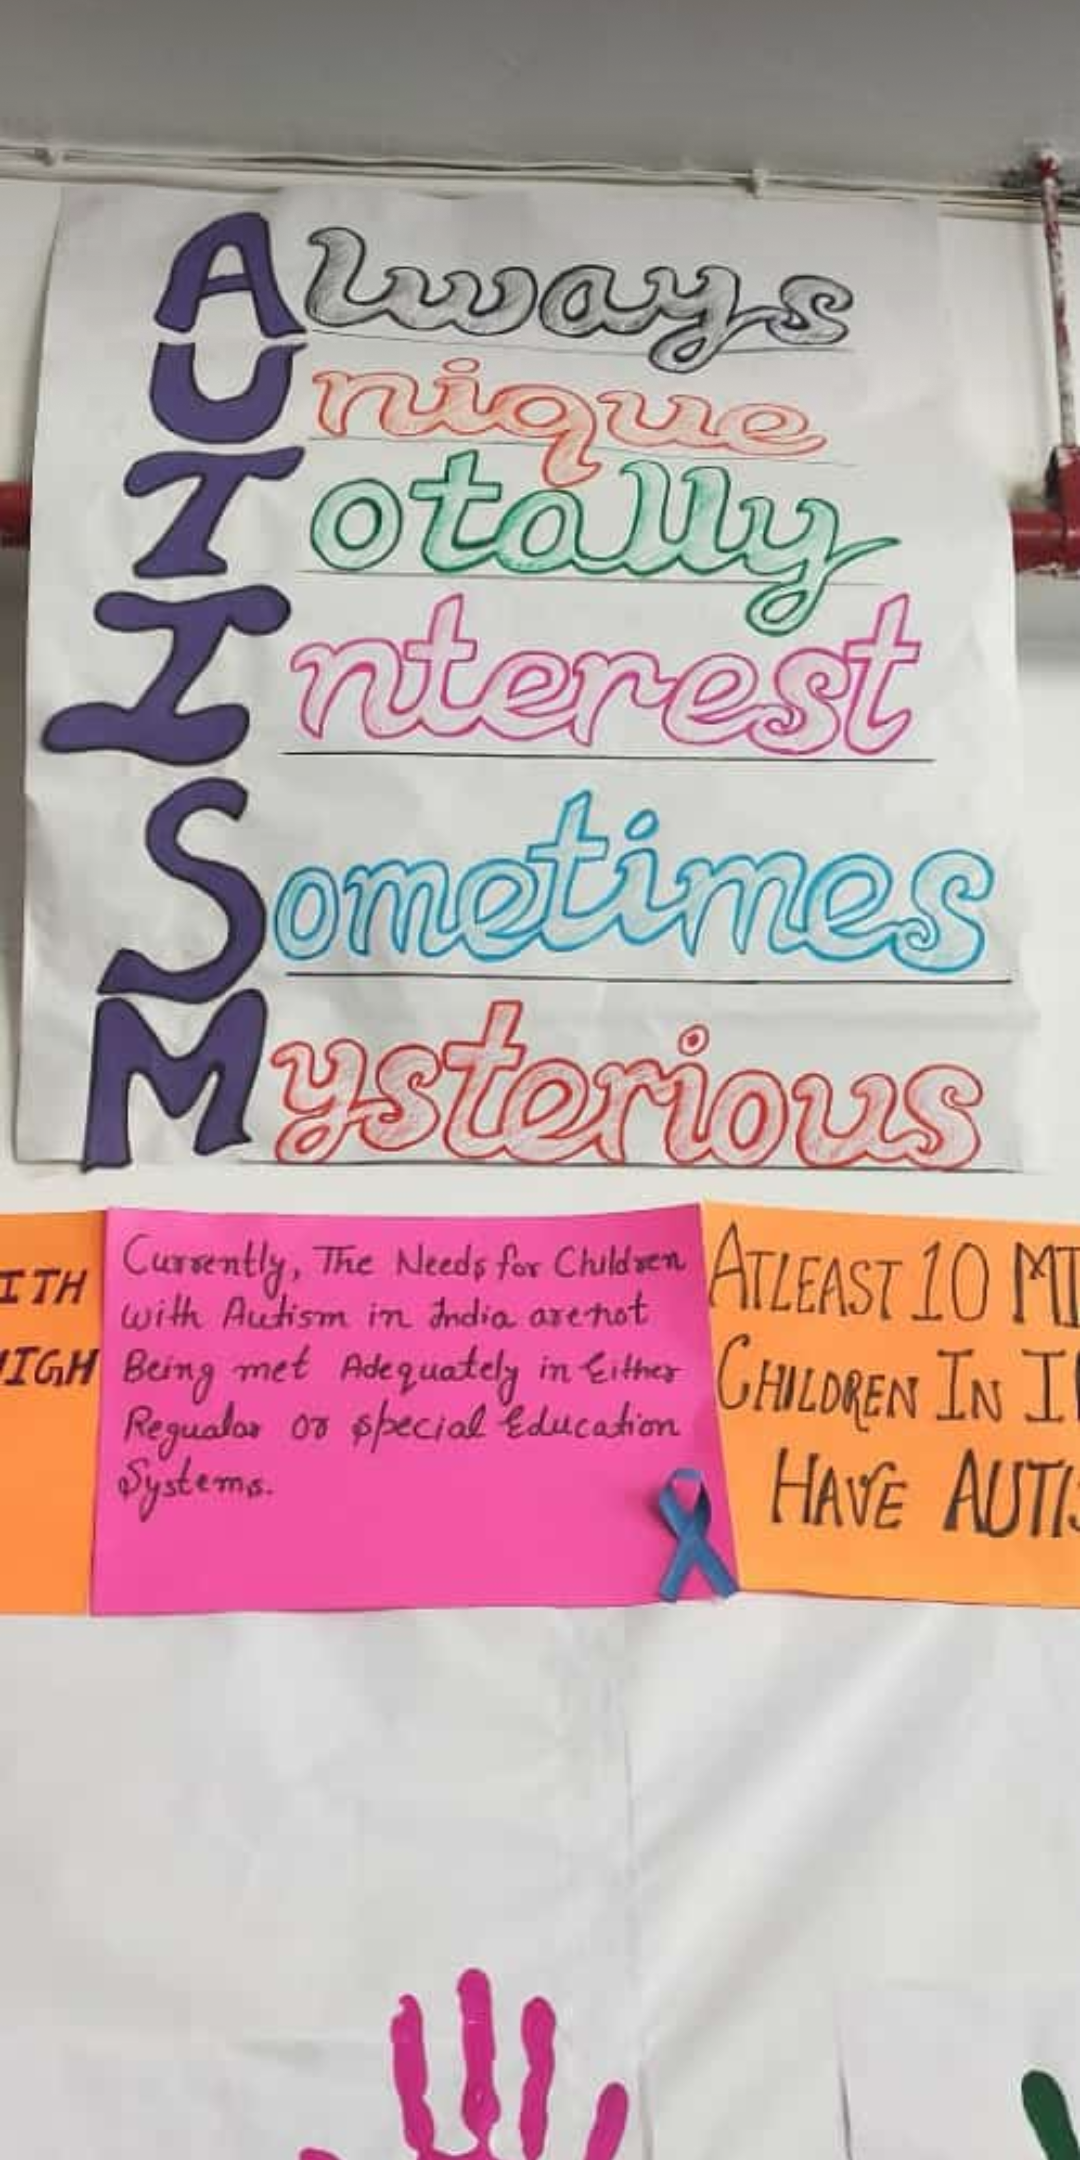 Always
Unique
Totally
Interest
Sometimes
Mysterious
ITH
IGH
Currently, The Needs for Children
with Autism in India are not
Being met Adequately in Either
Regualar or special Education
Systems.
ATLEAST 10 MI
CHILDREN IN I
HAVE AUTIS